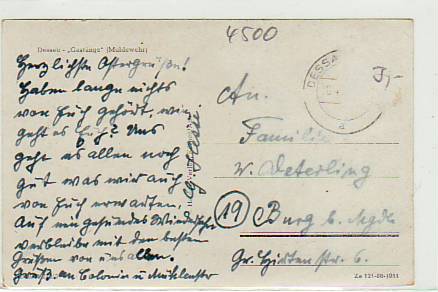 4500
Dessau - „Gestänge" (Muldewehr)
Herzlichste Ostergrüße!
Haben lange nichts
von Euch gehört, wie
geht es Euch? Uns
geht es allen noch
gut was wir auch
von Euch erwarten,
Auf ein gesundes Wiedersehen
verbleibe mit den besten
Grüßen von uns allen.
Gruß. an
DESSAU
3,-
An.
Familie
W. Deterling
19
Burg b. Mgdb
Gr. Hirtenstr. 6.